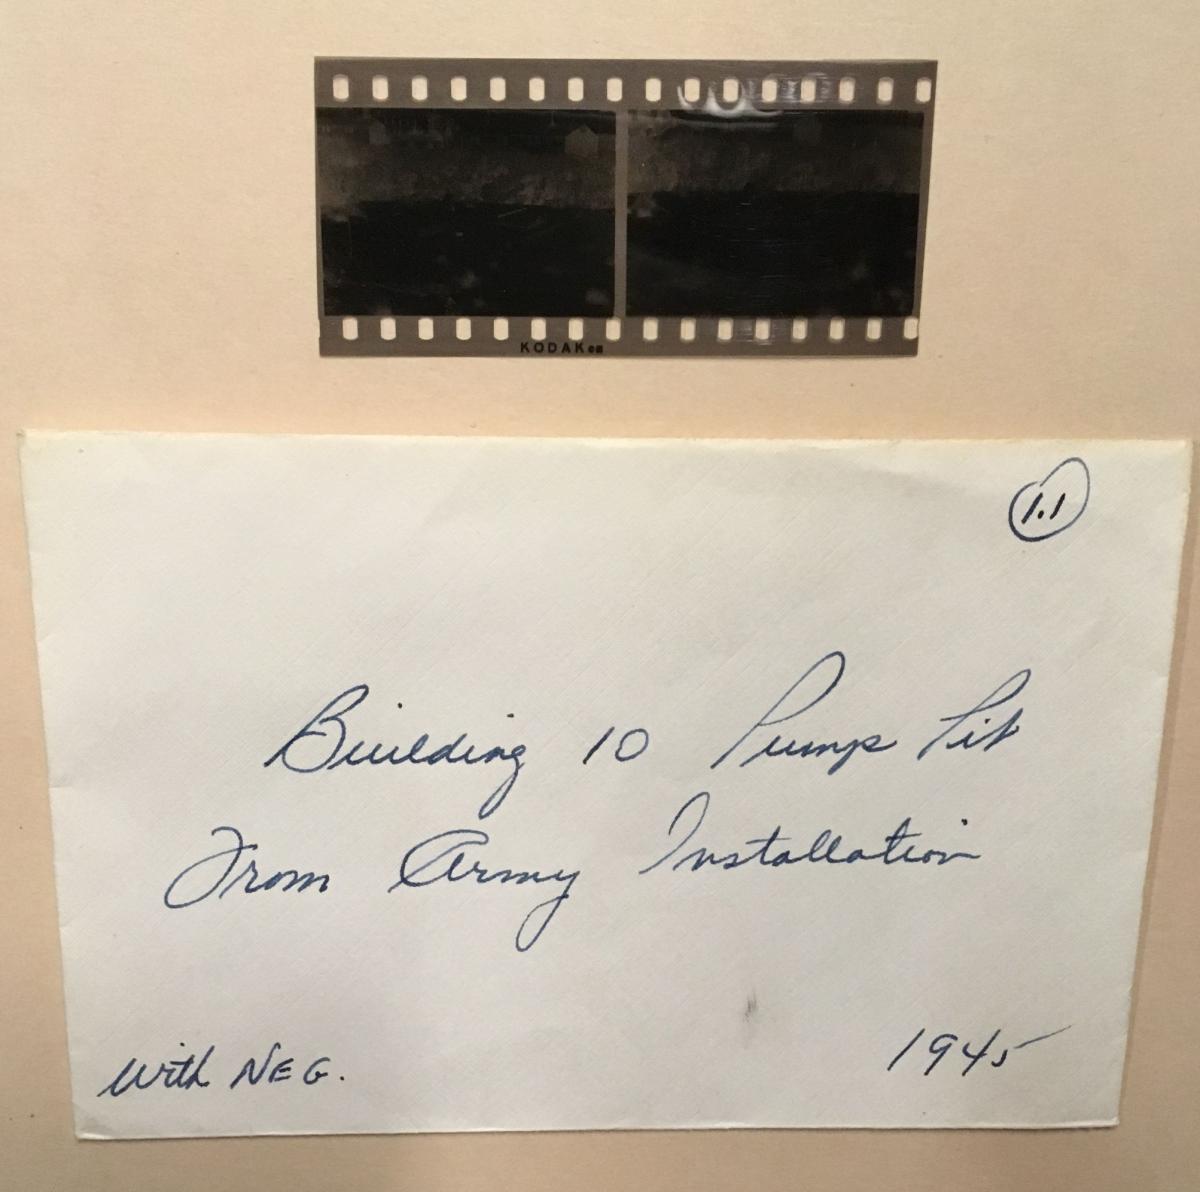 KODAK
1.1
Building 10 Pump Pit
From Army Installation
With NEG. 1945